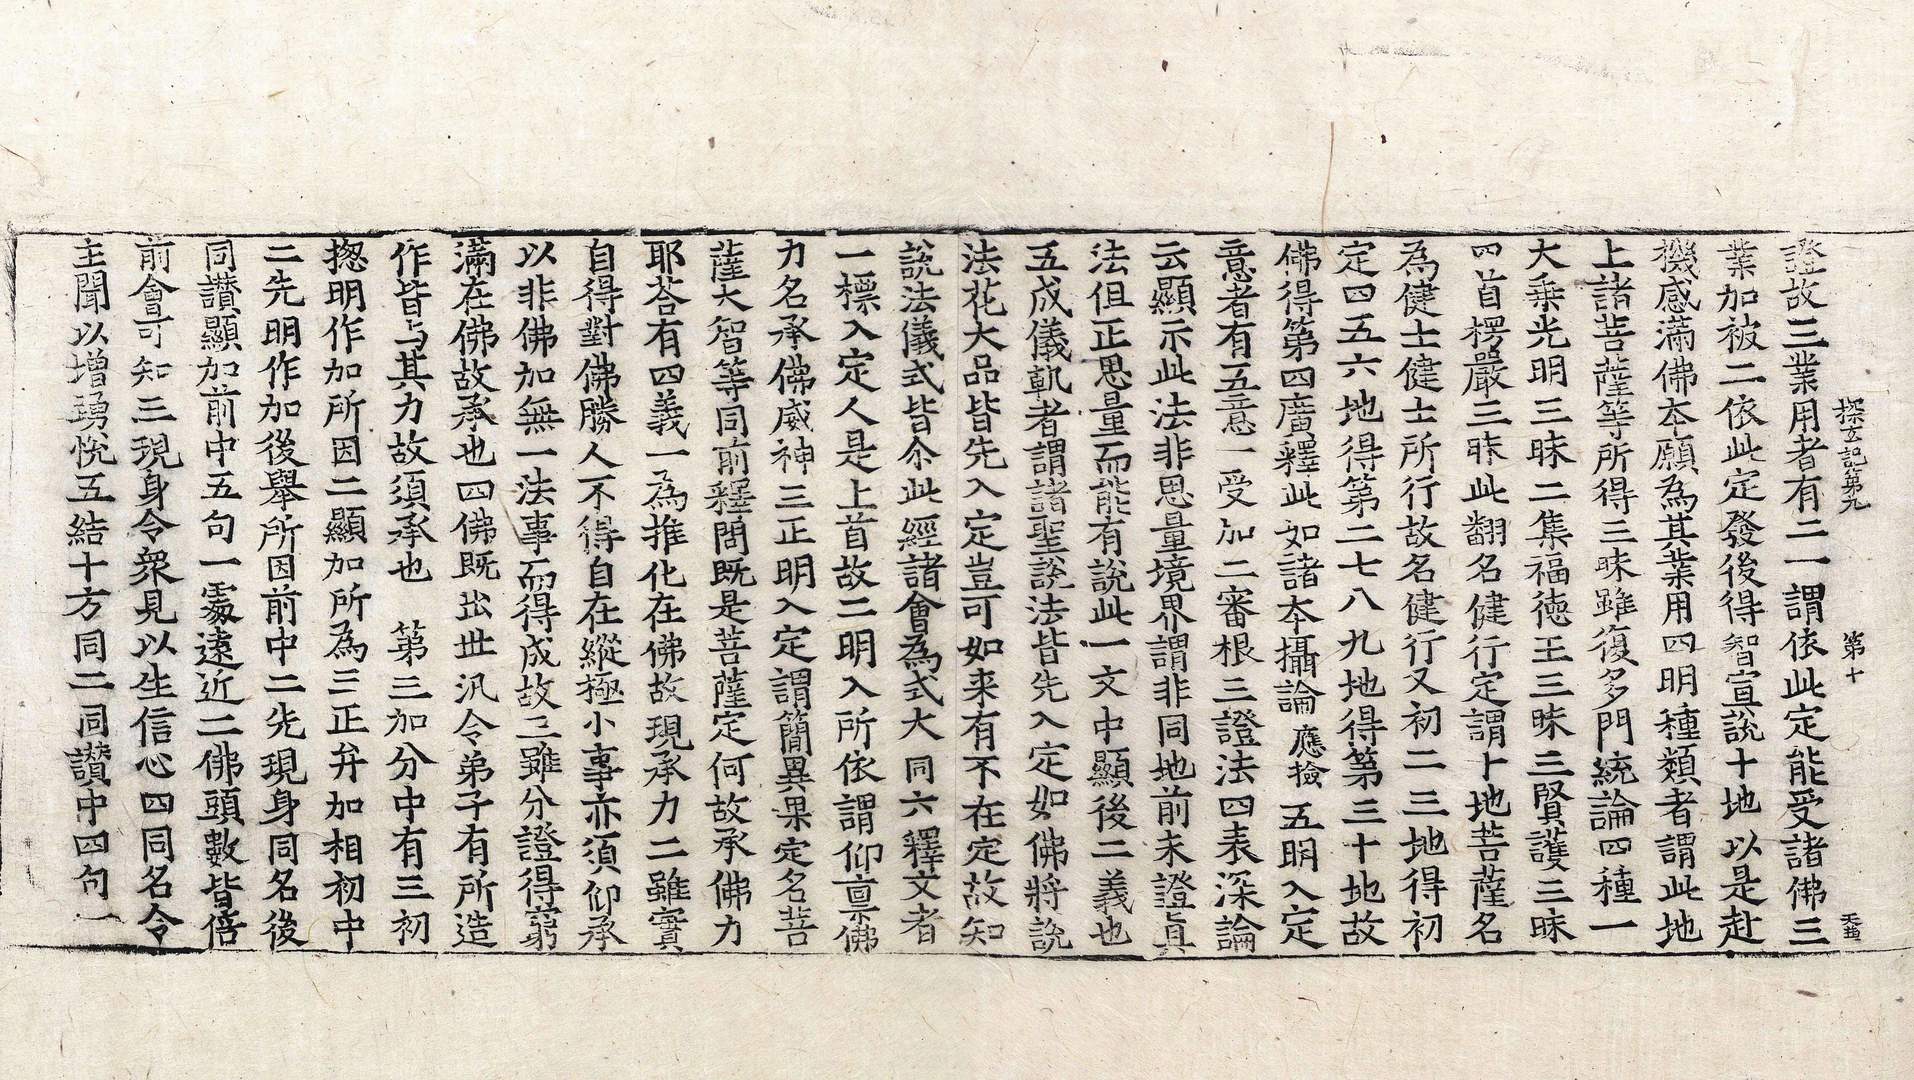 探玄記第九 第十 天
證故三業用者有二一謂依此定能受諸佛三
業加被二依此定發後得智宣說十地以是赴
機感滿佛本願為其業用四明種類者謂此地
上諸菩薩等所得三昧雖復多門統論四種一
大乗光明三昧二集福德王三昧三賢護三昧
四首楞嚴三昧此翻名健行定謂十地菩薩名
為健士健士所行故名健行又初二三地得初
定四五六地得第二七八九地得第三十地故
佛得第四廣釋此如諸本攝論應撿五明入定
意者有五意一受加二審根三證法四表深論
云顯示此法非思量境界謂非同地前未證真
法但正思量而能有說此一文中顯後二義也
五成儀軌者謂諸聖說法皆先入定如佛將說
法花大品皆先入定豈可如来有不在定故知
說法儀式皆尒此經諸會為式大同六釋文者
一標入定人是上首故二明入所依謂仰禀佛
力名承佛威神三正明入定謂簡異果定名菩
薩大智等同前釋問既是菩薩定何故承佛力
耶荅有四義一為推化在佛故現承力二雖實
自得對佛勝人不得自在縱極小事亦須仰承
以非佛加無一法事而得成故三雖分證得窮
滿在佛故承也四佛既出世汎令弟子有所造
作皆与其力故須承也 第三加分中有三初
揔明作加所因二顯加所為三正弁加相初中
二先明作加後舉所因前中二先現身同名後
同讃顯加前中五句一處遠近二佛頭數皆倍
前會可知三現身令衆見以生信心四同名令
主聞以增勇悅五結十方同二同讃中四句一